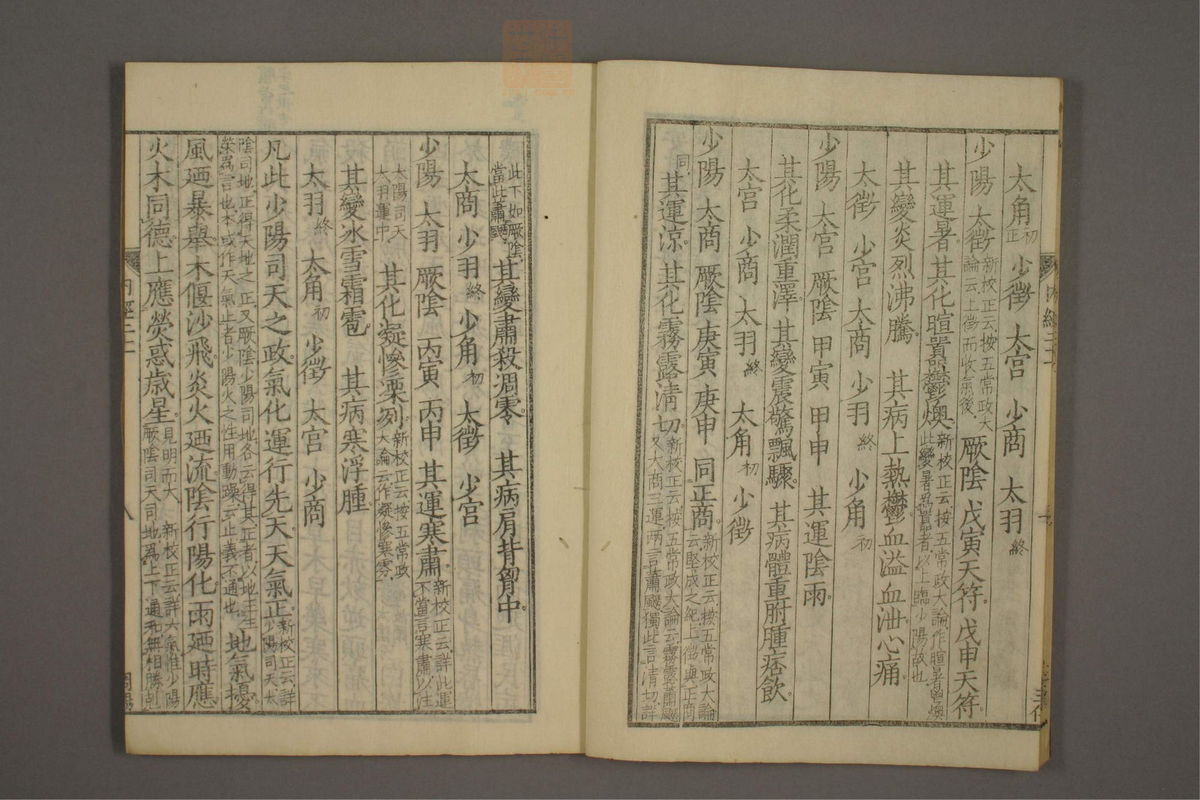 太角初正 少徵 太宫 少商 太羽終
少陽 太徵新校正云按五常政大論云上徵而收氣後 厥陰 戊寅天符 戊申天符
其運暑 其化暄囂鬱燠新校正云按五常政大論作暄暑鬱燠此變暑爲囂者以上臨少陽故也
其變炎烈沸騰 其病上熱鬱血溢血泄心痛
太徵 少宫 太商 少羽終 少角初
少陽 太宫 厥陰 甲寅 甲申 其運陰雨
其化柔潤重澤 其變震驚飄驟 其病體重胕腫痞飮
太宫 少商 太羽終 太角初 少徵
少陽 太商 厥陰 庚寅 庚申 同正商新校正云按五常政大論云堅成之紀上徵與正商
同 其運凉 其化霧露淸切新校正云按五常政大論云霧露蕭飋又太商三運兩言蕭飋獨此言淸切詳
此下如厥陰當此蕭飋 其變肅殺凋零 其病肩背胷中
太商 少羽終 少角初 太徵 少宫
少陽 太羽 厥陰 丙寅 丙申 其運寒肅新校正云詳此運不當言寒肅以注
太陽司天太羽運中 其化凝慘凓冽新校正云按五常政大論云作凝慘寒雰
其變冰雪霜雹 其病寒浮腫
太羽終 太角初 少徵 太宫 少商
凡此少陽司天之政氣化運行先天天氣正新校正云詳少陽司天太
陰司地正得天地之正又厥陰少陽司地各云得其正者以地主生榮爲言也本或作天氣止者少陽火之性用動躁云止義不通也 地氣擾
風廼暴舉木偃沙飛炎火廼流陰行陽化雨廼時應
火木同德上應熒惑歲星見明而大 新校正云詳六氣惟少陽厥陰司天司地爲上下通和無相勝剋
内經二十
八